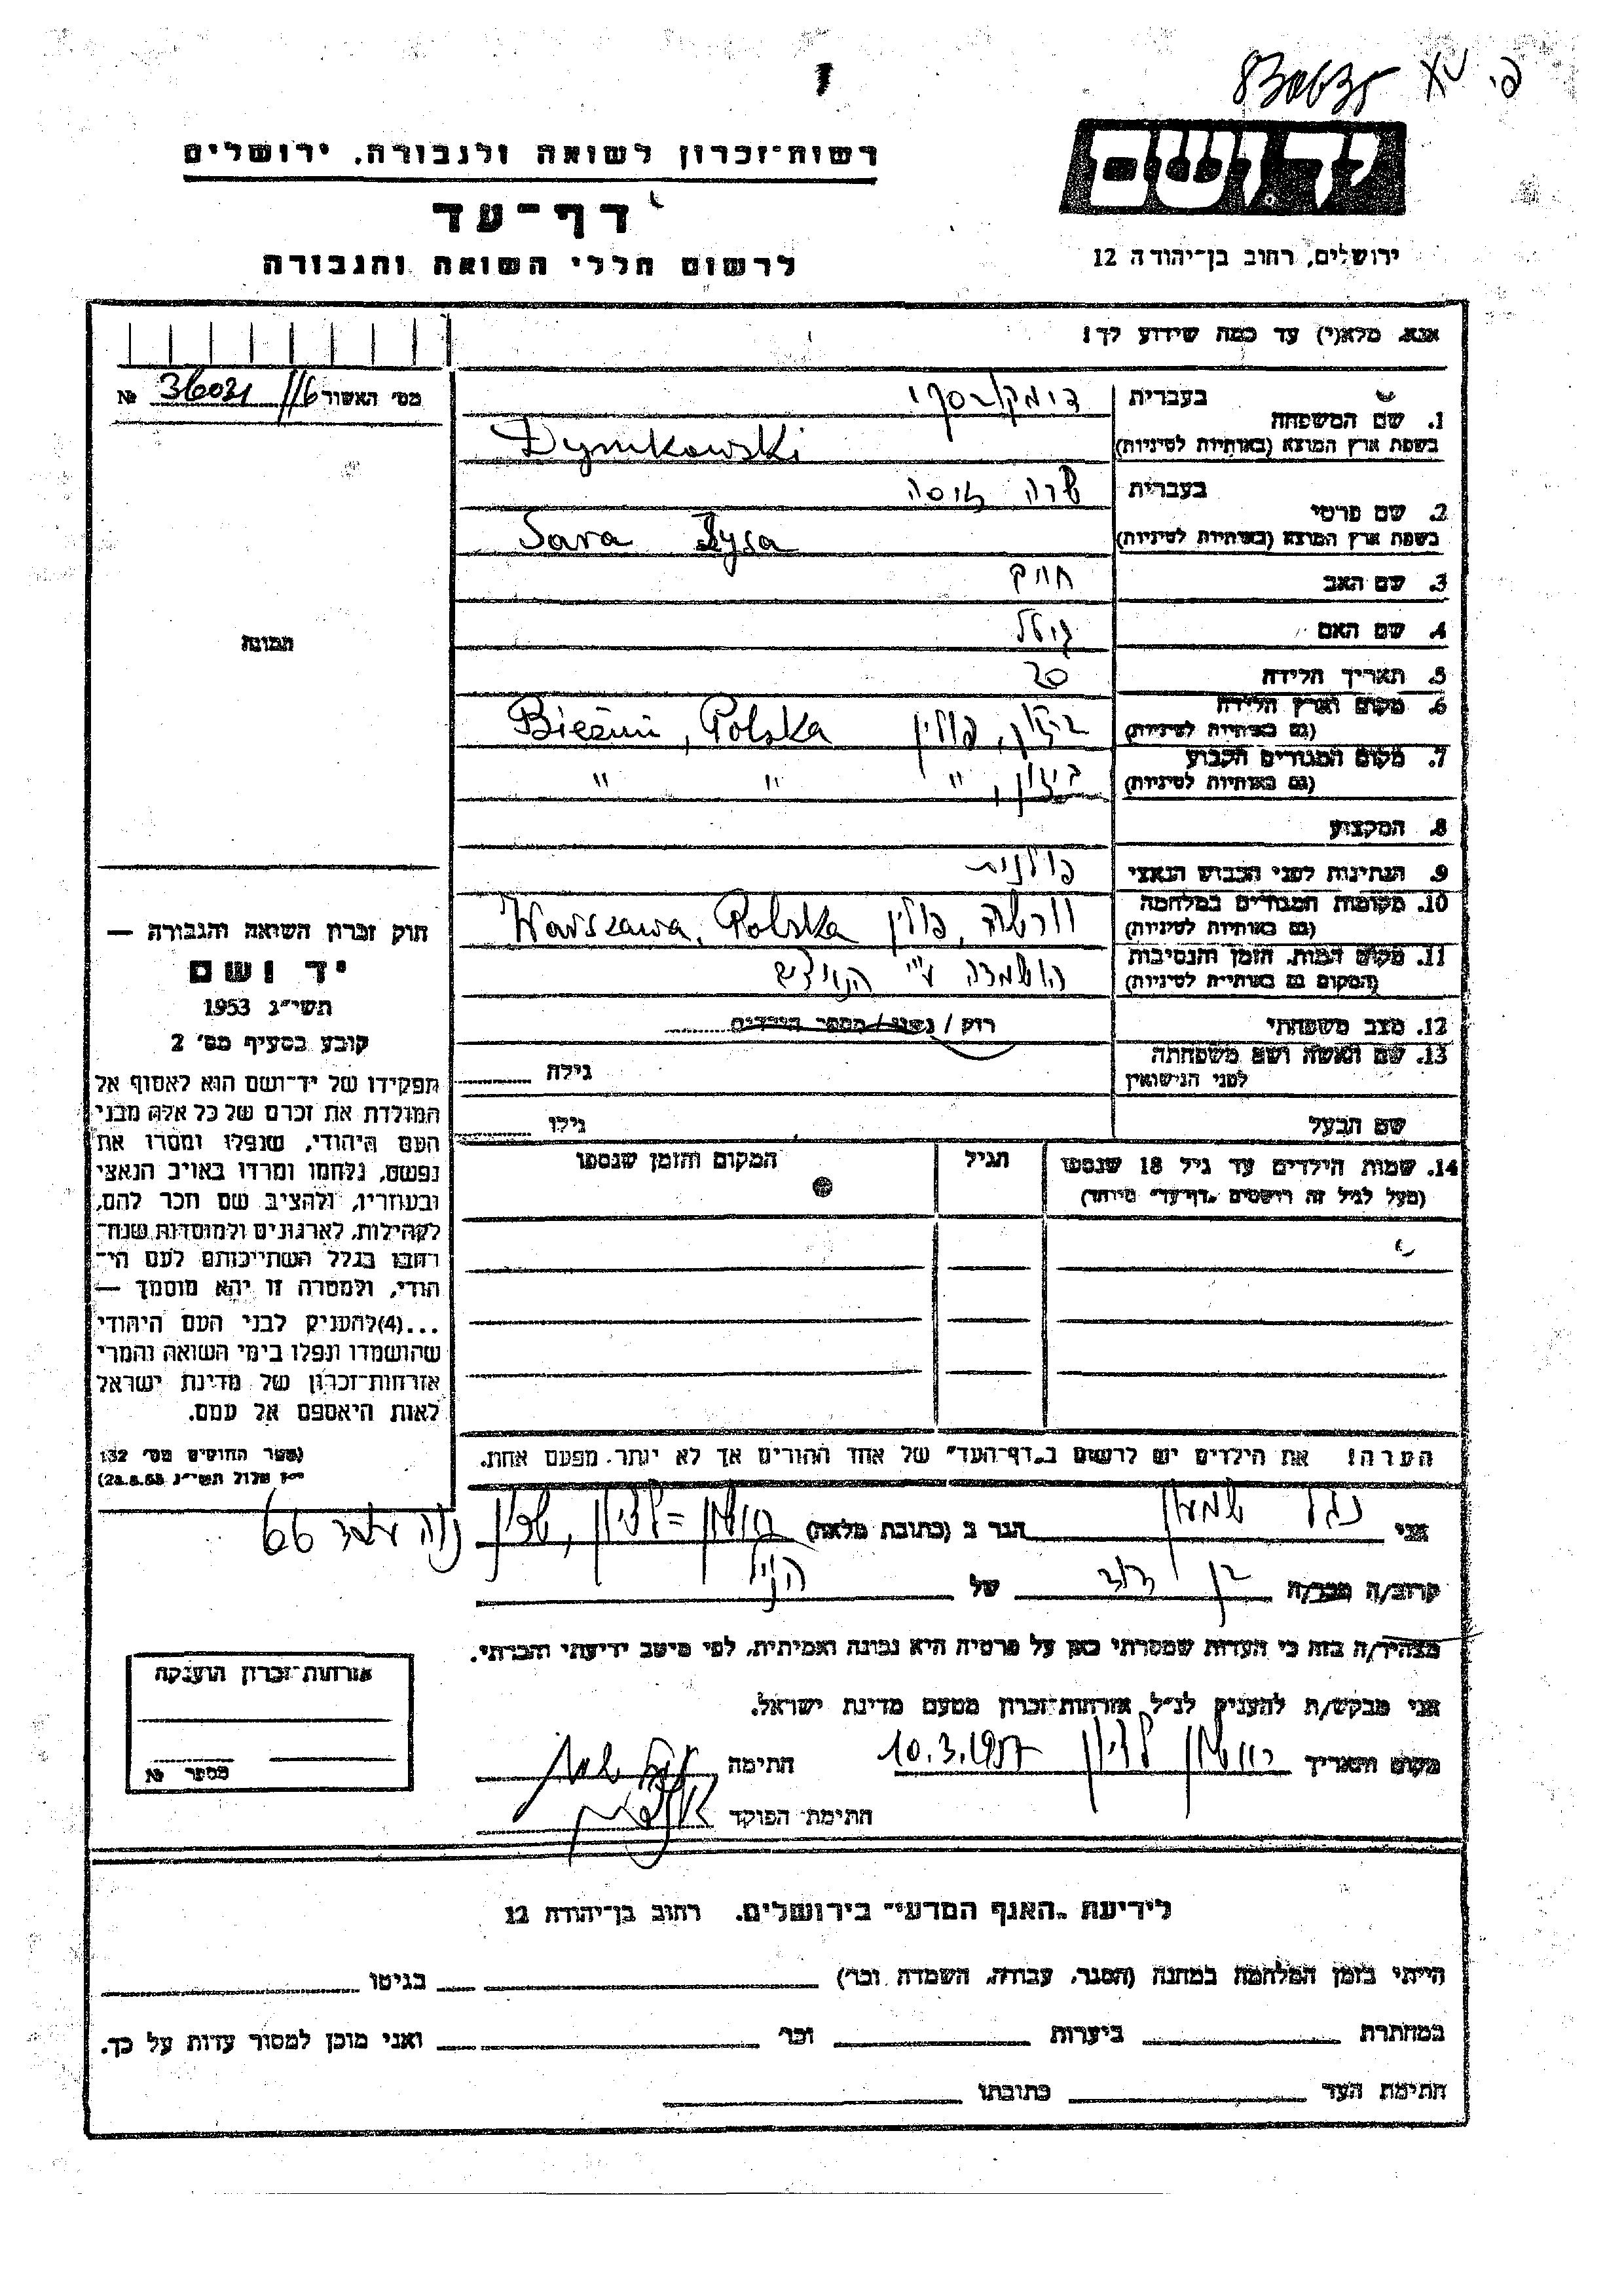 רשות־זכרון לשואה ולגבורה, ירושלים
דף־עד
לרשום חללי השואה והגבורה
יד ושם
ירושלים, רחוב בן־יהודה 12
אנא, מלא(י) עד כמה שידוע לך!
מס׳ האשור 116 36021 №
1. שם המשפחה
בעברית דימקובסקי
בשפת ארץ המוצא (באותיות לטיניות) Dymkowski
2. שם פרטי
בעברית שרה זיסה
בשפת ארץ המוצא (באותיות לטיניות) Sara Zysa
3. שם האב
4. שם האם גיטל
5. תאריך הלידה 20
6. מקום וארץ הלידה
(גם באותיות לטיניות) ביזון, פולין Bieżuń, Polska
7. מקום המגורים הקבוע
(גם באותיות לטיניות) ביזון, " " "
8. המקצוע
9. הנתינות לפני הכבוש הנאצי פולנית
10. מקומות המגורים במלחמה
(גם באותיות לטיניות) ורשה, פולין Warszawa, Polska
11. מקום המות, הזמן והנסיבות
(המקום גם באותיות לטיניות) הושמדה ע"י הנאצים
12. מצב משפחתי רוק / נשוי / מספר הילדים
13. שם האשה ושם משפחתה
לפני הנישואין גילה
שם הבעל גילו
14. שמות הילדים עד גיל 18 שנספו הגיל המקום והזמן שנספו
(מעל לגיל זה רושמים „דף־עד" מיוחד)
הערה! את הילדים יש לרשום ב„דף־העד" של אחד ההורים אך לא יותר. מפעם אחת.
תמונה
חוק זכרון השואה והגבורה —
יד ושם
תשי״ג 1953
קובע בסעיף מס׳ 2
תפקידו של יד־ושם הוא לאסוף אל
המולדת את זכרם של כל אלה מבני
העם היהודי, שנפלו ומסרו את
נפשם, נלחמו ומרדו באויב הנאצי
ובעוזריו, ולהציב שם וזכר להם,
לקהילות, לארגונים ולמוסדות שנח־
רבו בגלל השתייכותם לעם הי־
הודי, ולמטרה זו יהא מוסמך —
...(4)להעניק לבני העם היהודי
שהושמדו ונפלו בימי השואה והמרי
אזרחות־זכרון של מדינת ישראל
לאות היאספם אל עמם.
(ספר החוקים מס׳ 132
אלול תשי״ג 28.8.53)
אני נגל שמעון הגר ב (כתובת מלאה) ראשון=לציון, שכון 66
קרוב/ה מכר/ה בן דוד של הנ״ל
מצהיר/ה בזה כי העדות שמסרתי כאן על פרטיה היא נכונה ואמיתית, לפי מיטב ידיעתי והכרתי.
אני מבקש/ת להעניק לנ״ל אזרחות־זכרון מטעם מדינת ישראל.
מקום ותאריך ראשון לציון 10.3.1957 חתימה
חתימת הפוקד
אזרחות־זכרון הוענקה
מספר №
לידיעת „האגף המדעי" בירושלים, רחוב בן־יהודה 12
הייתי בזמן המלחמה במחנה (הסגר, עבודה, השמדה וכו׳) בגיטו
במחתרת ביערות וכו׳ ואני מוכן למסור עדות על כך.
חתימת העד כתובתו